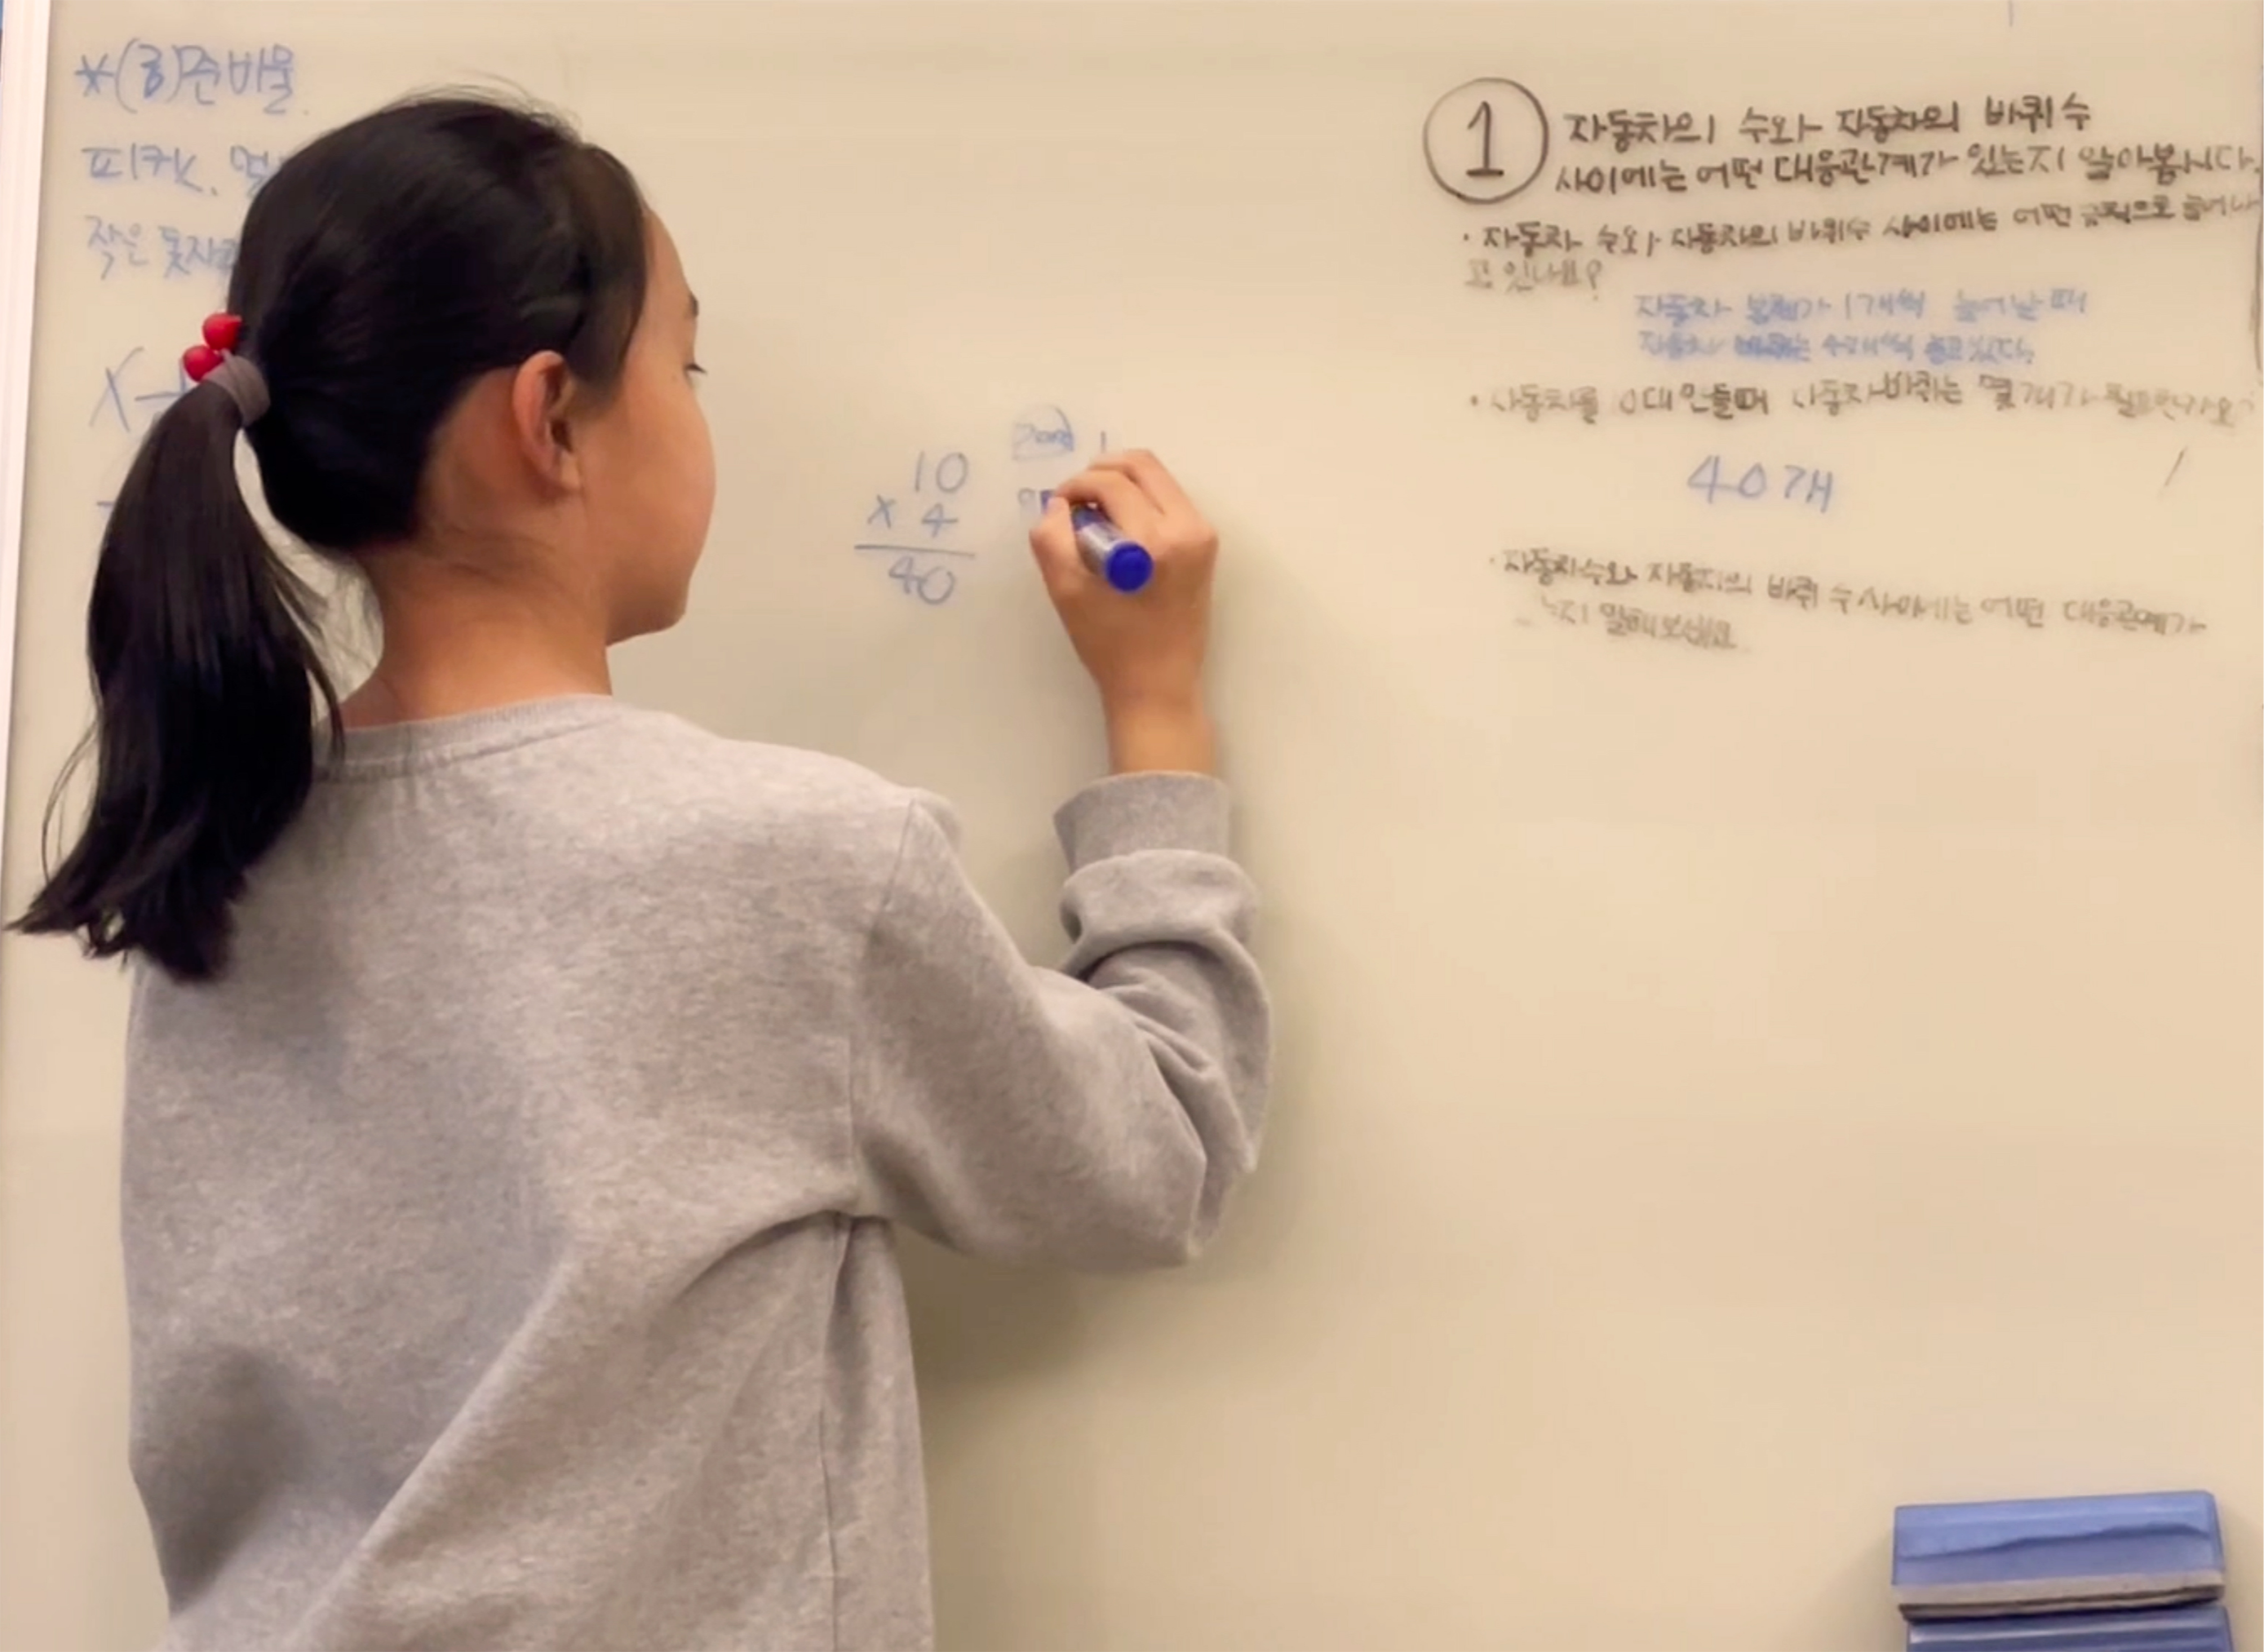 *(홍)준비물
피켓,
작은 돗자리
X
10
x 4
40
1
① 자동차의 수와 자동차의 바퀴 수
사이에는 어떤 대응관계가 있는지 알아봅시다.
· 자동차 수와 자동차의 바퀴수 사이에는 어떤 규칙으로 늘어나
고 있나요?
자동차 1개씩 늘어날 때
자동차 바퀴는 4개씩
· 자동차를 10대 만들때 자동차 바퀴는 몇개가 필요한가요?
40개
· 자동차수와 자동차의 바퀴 수 사이에는 어떤 대응관계가
는지 말해보세요.